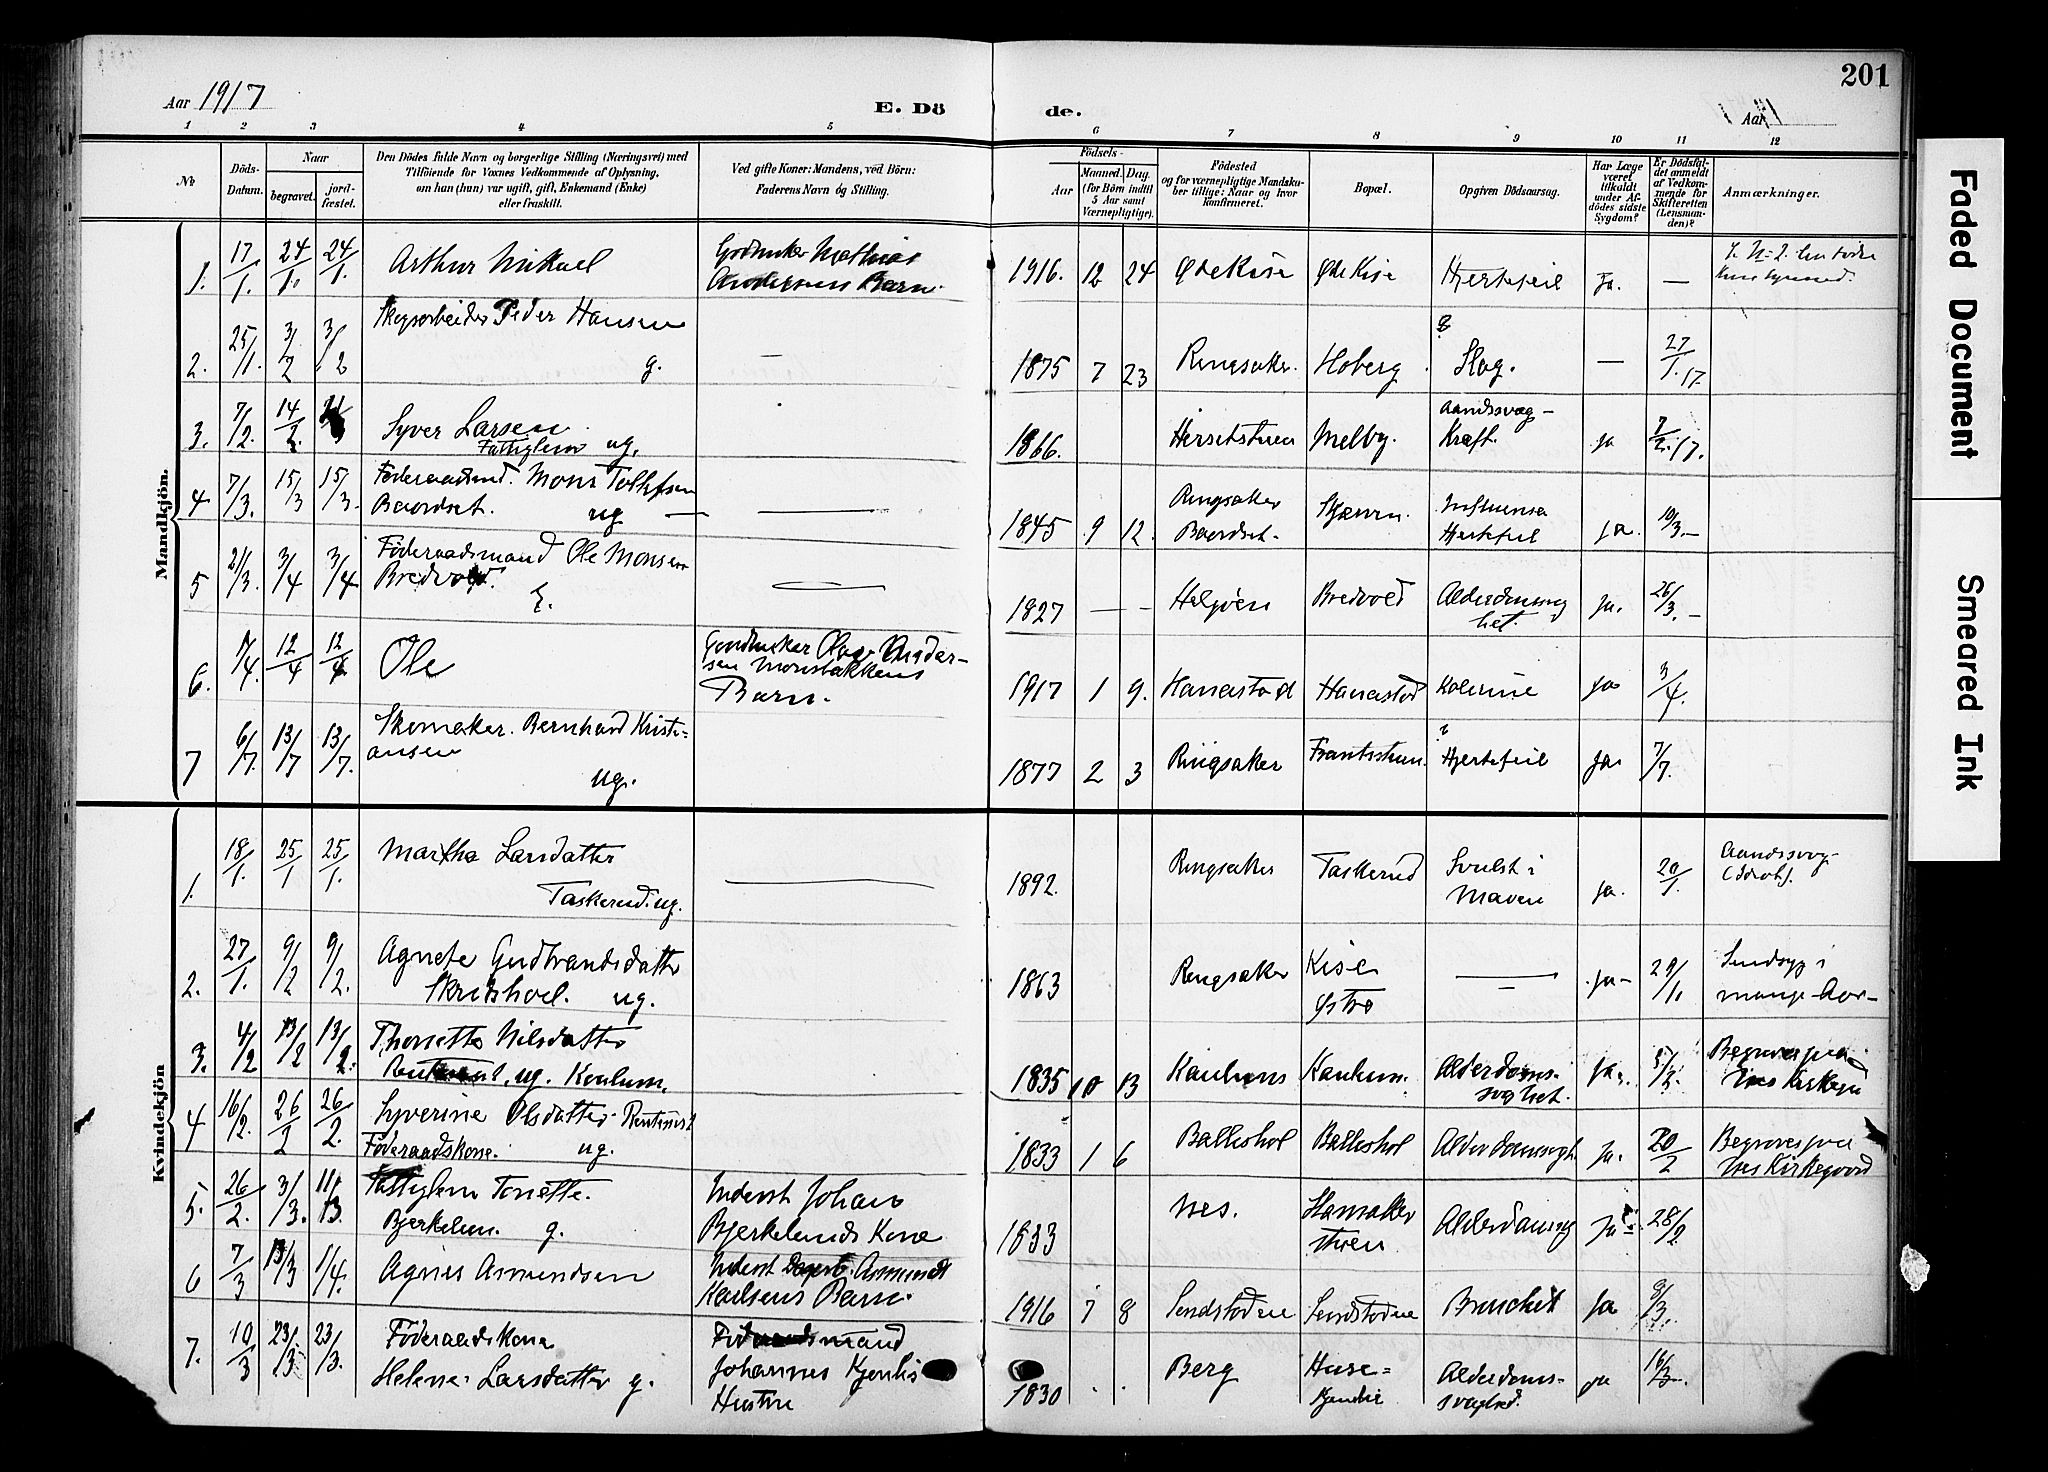 201
Aar 1917
E. Döde.
Aar
1 2 3 4 5 6 7 8 9 10 11 12
No
Döds-Datum.
Naar
begravet.
jordfæstet.
Den Dödes fulde Navn og borgerlige Stilling (Næringsvei) med
Tilföiende for Voxnes Vedkommende af Oplysning,
om han (hun) var ugift, gift, Enkemand (Enke)
eller fraskilt.
Ved gifte Koner: Mandens, ved Börn:
Faderens Navn og Stilling.
Födsels-
Aar
Maaned. Dag.
(for Börn indtil
5 Aar samt
Værnepligtige).
Födested
og for værnepligtige Mandskaber tillige: Naar og hvor
konfirmeret.
Bopæl.
Opgiven Dödsaarsag.
Har Læge
været
tilkaldt
under Afdödes sidste
Sygdom?
Er Dödsfaldet anmeldt
af Vedkommende for
Skifteretten
(Lensmanden)?
Anmærkninger.
Mandkjön.
1. 17/1. 24/1. 24/1. Arthur Mikael Gardbruker Mathias
Andersens Barn. 1916. 12 24 Øde Kise Øde Kise Hjertefeil Ja. —
2. 25/1. 3/2 3/2 Skogsarbeider Peder Hansen
g. — 1875 7 23 Ringsaker. Hoberg Slag. — 27/1.17.
3. 7/2. 14/2. Syver Larsen
Fattiglem ug. 1866. Hersetstuen Melby. Aandssvag –
Kræft. ja 7/2.17.
4 7/3. 15/3 15/3. Föderaadsmd. Mons Tollefsen
Baardset. ug — 1845 9 12. Ringsaker
Baardset. Influensa
Hjertefeil ja. 10/3.–
5 21/3. 3/4 3/4 Föderaadsmand Ole Monsen
Bredvold. E. — 1827 — — Helgöen Bredvold Alderdomssvaghet. ja. 26/3.–
6. 1/4. 12/4 12/4 Ole Gardbruker Olaf Andersen Monsbakkens
Barn. 1917 1 9. Hanestad Hanestad Kolerine ja 3/4.
7 6/7. 13/7 13/7. Skomaker. Bernhard Kristiansen
ug. 1877 2 3 Ringsaker Frantsstuen. ? Hjertefeil Ja 7/7.
Kvindekjön
1. 18/1. 25/1 25/1. Martha Larsdatter
Taskerud. ug. — 1892. Ringsaker Taskerud Svulst i
Maven ja. 20/1. Aandssvag
2. 27/1. 9/2 9/2. Agnete Gudbrandsdatter
Skredshoel. ug. 1863 Ringsaker Kise
østre — ja– 29/1. Sindssyg i
mange Aar–
3. 4/2 13/2 13/2. Thonette Nilsdatter
ug. Kaulum. 1835 10 13 Kaulum Kaulum. Alderdomssvaghet. Ja. 5/2. Begravet paa
Nes Kirkegd
4 16/2. 26/2 26/2. Syverine Olsdatter. Rentenist
Föderaadskone. ug. 1833 1 6 Balleshol Balleshol Alderdomssvagh. Ja. 20/2 Begravet paa
Nes Kirkegaard
5. 26/2. 3/3. Fattiglem Tonette.
Bjerkelun. g. Inderst Johan
Bjerkelunds Kone 1833 Nes. Alderdomssvag Ja 28/2.
6 7/3 13/3 1/4. Agnes Asmundsen Inderst Dagarb. Asmundt
Karlsens Barn. 1916 7 8 Sundstadene Sundstadene Bronchit Ja 9/3.
7. 10/3 23/3. 23/3. Föderaadskone
Helene Larsdatter g. Föderaadsmand
Johannes
Hustru 1830 Berg Alderdomssvaghed. ja 16/3–.
Faded Document
Smeared Ink